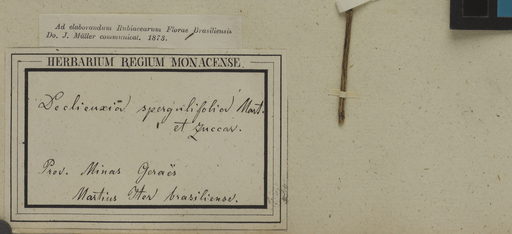 Ad elaborandum Rubiacearum Florae Brasiliensis
Do. J. Müller communicat. 1873.
HERBARIUM REGIUM MONACENSE.
Declieuxia spergulifolia Mart.
et Zuccar.
Prov. Minas Geraës
Martius Iter brasiliense.